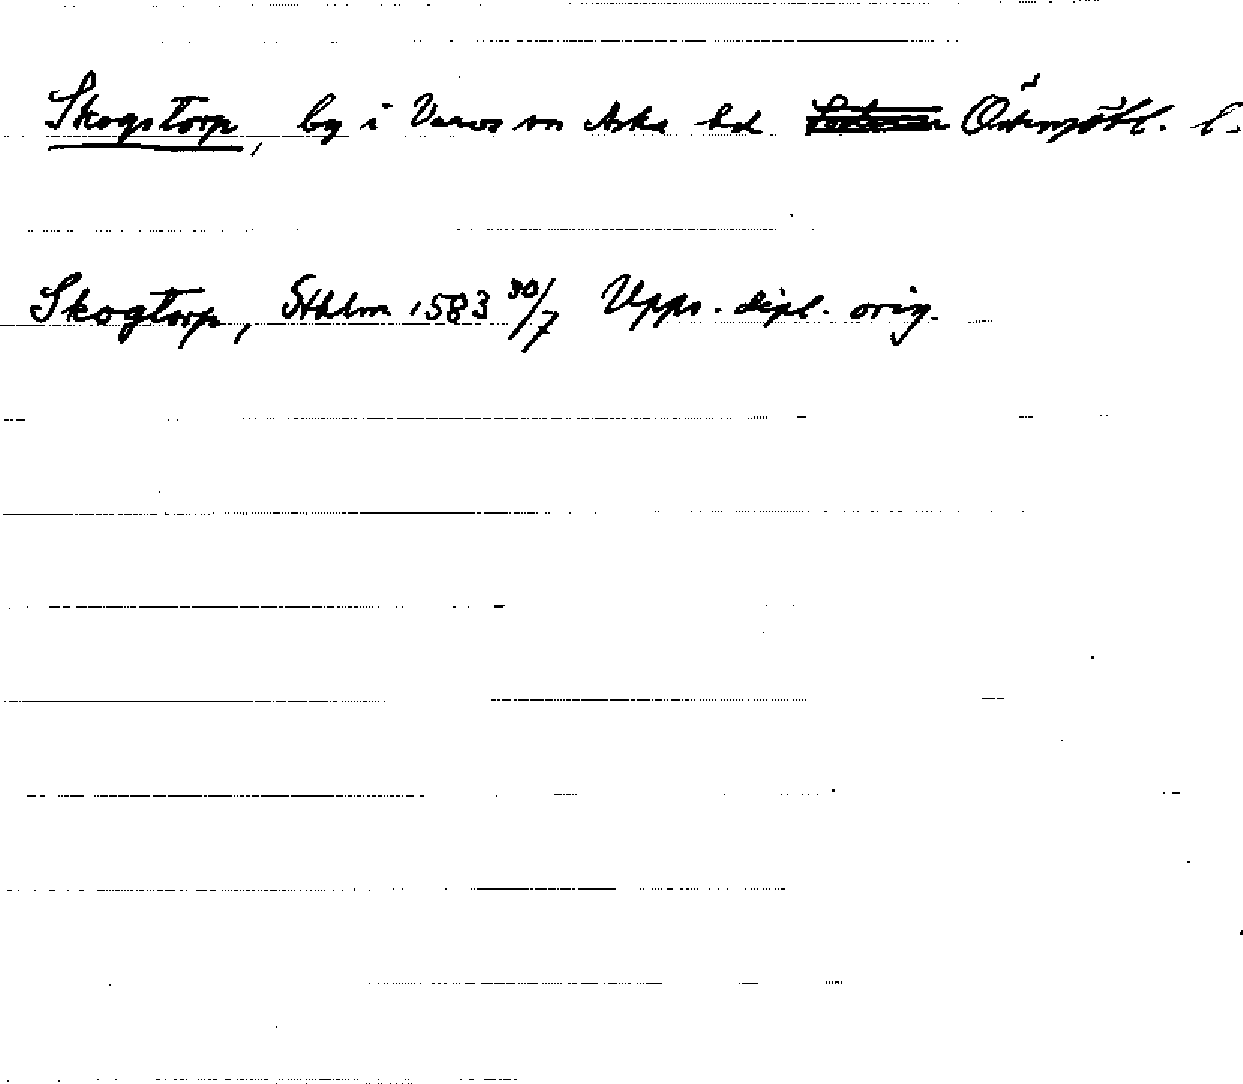 Skogstorp, by i Varvs sn Aska hd Östergötl. l.
Skogtorp, Sthlm 1583 30/7 Upps. dipl. orig.